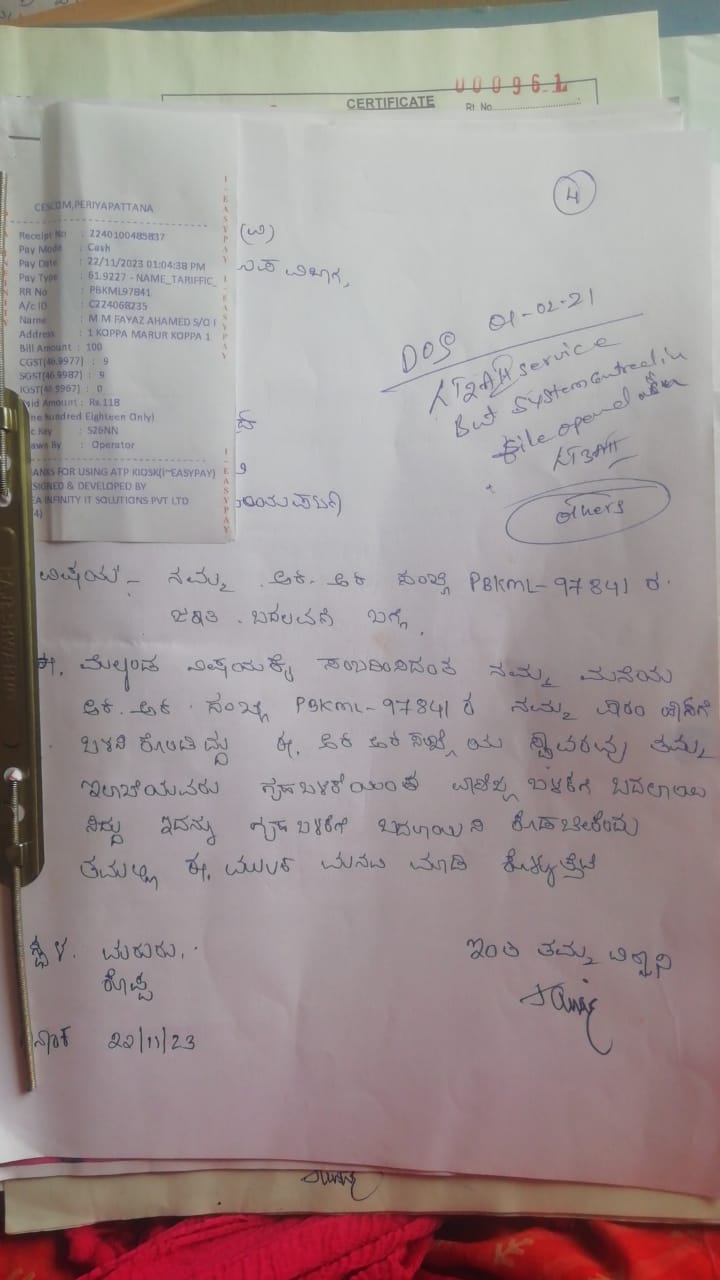 000961
CERTIFICATE
Rt No
4
CESCOM,PERIYAPATTANA
Receipt No : 2240100485837
Pay Mode : Cash
Pay Date : 22/11/2023 01:04:38 PM
Pay Type : 61.9227 - NAME_TARIFFIC_
RR No : PBKML97841
A/c ID : C224068235
Name : M M FAYAZ AHAMED S/O I
Address : 1 KOPPA MARUR KOPPA 1
Bill Amount : 100
CGST(46.9977) : 9
SGST(46.9987) : 9
IGST(46.9967) : 0
aid Amount : Rs.118
ne Hundred Eighteen Only)
c Key : S26NN
awn By : Operator
ANKS FOR USING ATP KIOSK(i~EASYPAY)
SIGNED & DEVELOPED BY
EA INFINITY IT SOLUTIONS PVT LTD
4)
I-EASYPAY I-EASYPAY I-EASYPAY
(ವಿ)
ವಿಭಾಗ,
DOS 01-02-21
LT2AH service
But system entred in
file opend
LT3AH
others
ವಿಷಯ:- ನಮ್ಮ ಆರ್. ಆರ್ ಸಂಖ್ಯೆ PBKML-97841 ರ
ಜಕಾತಿ ಬದಲಾವಣೆ ಬಗ್ಗೆ.
ಈ, ಮೇಲ್ಕಂಡ ವಿಷಯಕ್ಕೆ ಸಂಬಂಧಿಸಿದಂತೆ ನಮ್ಮ ಮನೆಯ
ಆರ್. ಆರ್. ಸಂಖ್ಯೆ PBKML-97841 ರ ನಮ್ಮ
ಈ, ಆರ್ ಆರ್ ಸಂಖ್ಯೆ ಯ ಸ್ಥಾವರವು ತಮ್ಮ
ಇಲಾಖೆಯವರು ಗೃಹ ಬಳಕೆಯಿಂದ ವಾಣಿಜ್ಯ ಬಳಕೆಗೆ ಬದಲಾಯಿ
ಸಿದ್ದು ಇದನ್ನು ಗೃಹ ಬಳಕೆಗೆ ಬದಲಾಯಿಸಿ ಕೊಡಬೇಕೆಂದು
ತಮ್ಮಲ್ಲಿ ಈ, ಮೂಲಕ ಮನವಿ ಮಾಡಿ ಕೊಳ್ಳುತ್ತೇನೆ
ಸ್ಥಳ. ಮರೂರು,
ಕೊಪ್ಪ
ಇಂತಿ ತಮ್ಮ ವಿಶ್ವಾಸಿ
22/11/23